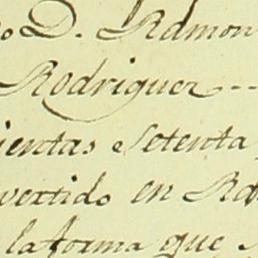 o D. Ramon
Rodriguez
ientas setenta
vertido en Ra
la forma que